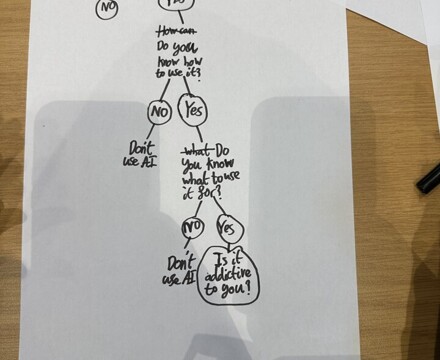 Yes
NO
How can
Do you
know how
to use it?
NO Yes
Don't
use AI
What Do
you know
what to use
it for?
NO Yes
Don't
use AI
Is it
addictive
to you?